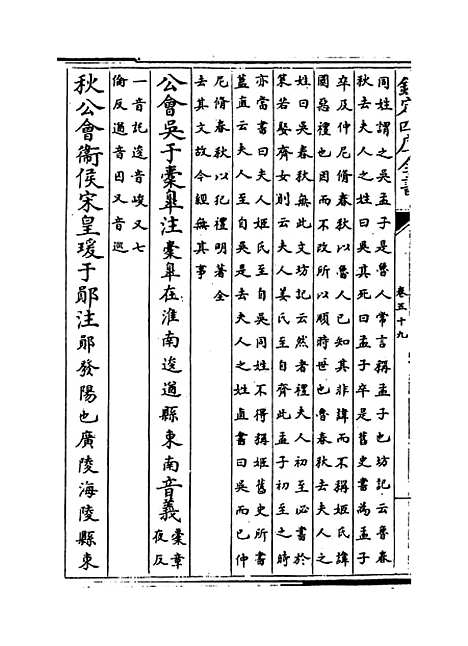 欽定四庫全書
卷五十九
同姓謂之吳孟子是魯人常言稱孟子也坊記云魯春
秋去夫人之姓曰吳其死曰孟子卒是舊史書為孟子
卒及仲尼脩春秋以魯人已知其非諱而不稱姬氏諱
國惡禮也因而不改所以順時世也魯春秋去夫人之
姓曰吳春秋無此文坊記云然者禮夫人初至必書於
策若娶齊女則云夫人姜氏至自齊此孟子初至之時
亦當書曰夫人姬氏至自吳同姓不得稱姬舊史所書
蓋直云夫人至自吳是去夫人之姓直書曰吳而已仲
尼脩春秋以犯禮明著全
去其文故今經無其事
公會吳于橐臯注橐臯在淮南逡遒縣東南音義橐章
夜反
一音託逡音峻又七
倫反遒音囚又音巡
秋公會衞侯宋皇瑗于鄖注鄖發陽也廣陵海陵縣東